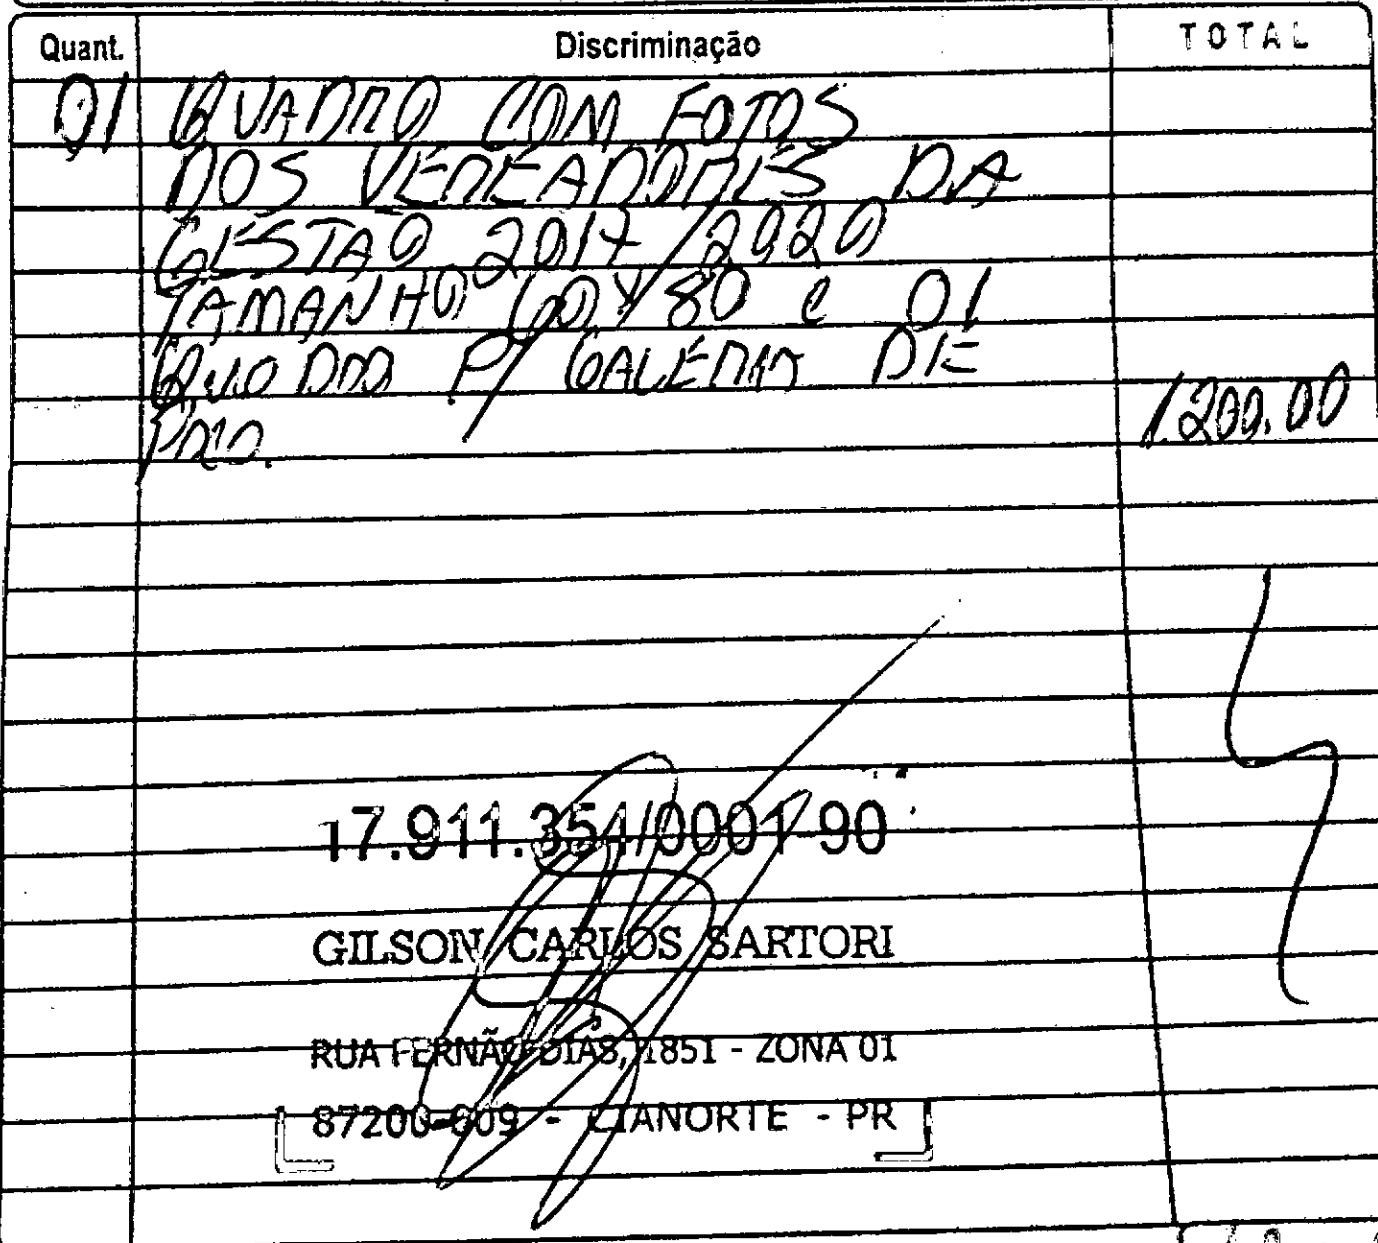 Quant. Discriminação TOTAL
01 QUADRO COM FOTOS
DOS VEREADORES DA
GESTÃO 2017/2020
TAMANHO 60x80 e 01
QUADRO P/ GALERIA DE
1.200,00
17.911.354/0001-90
GILSON CARLOS SARTORI
RUA FERNÃO DIAS, 1851 - ZONA 01
87200-009 - CIANORTE - PR